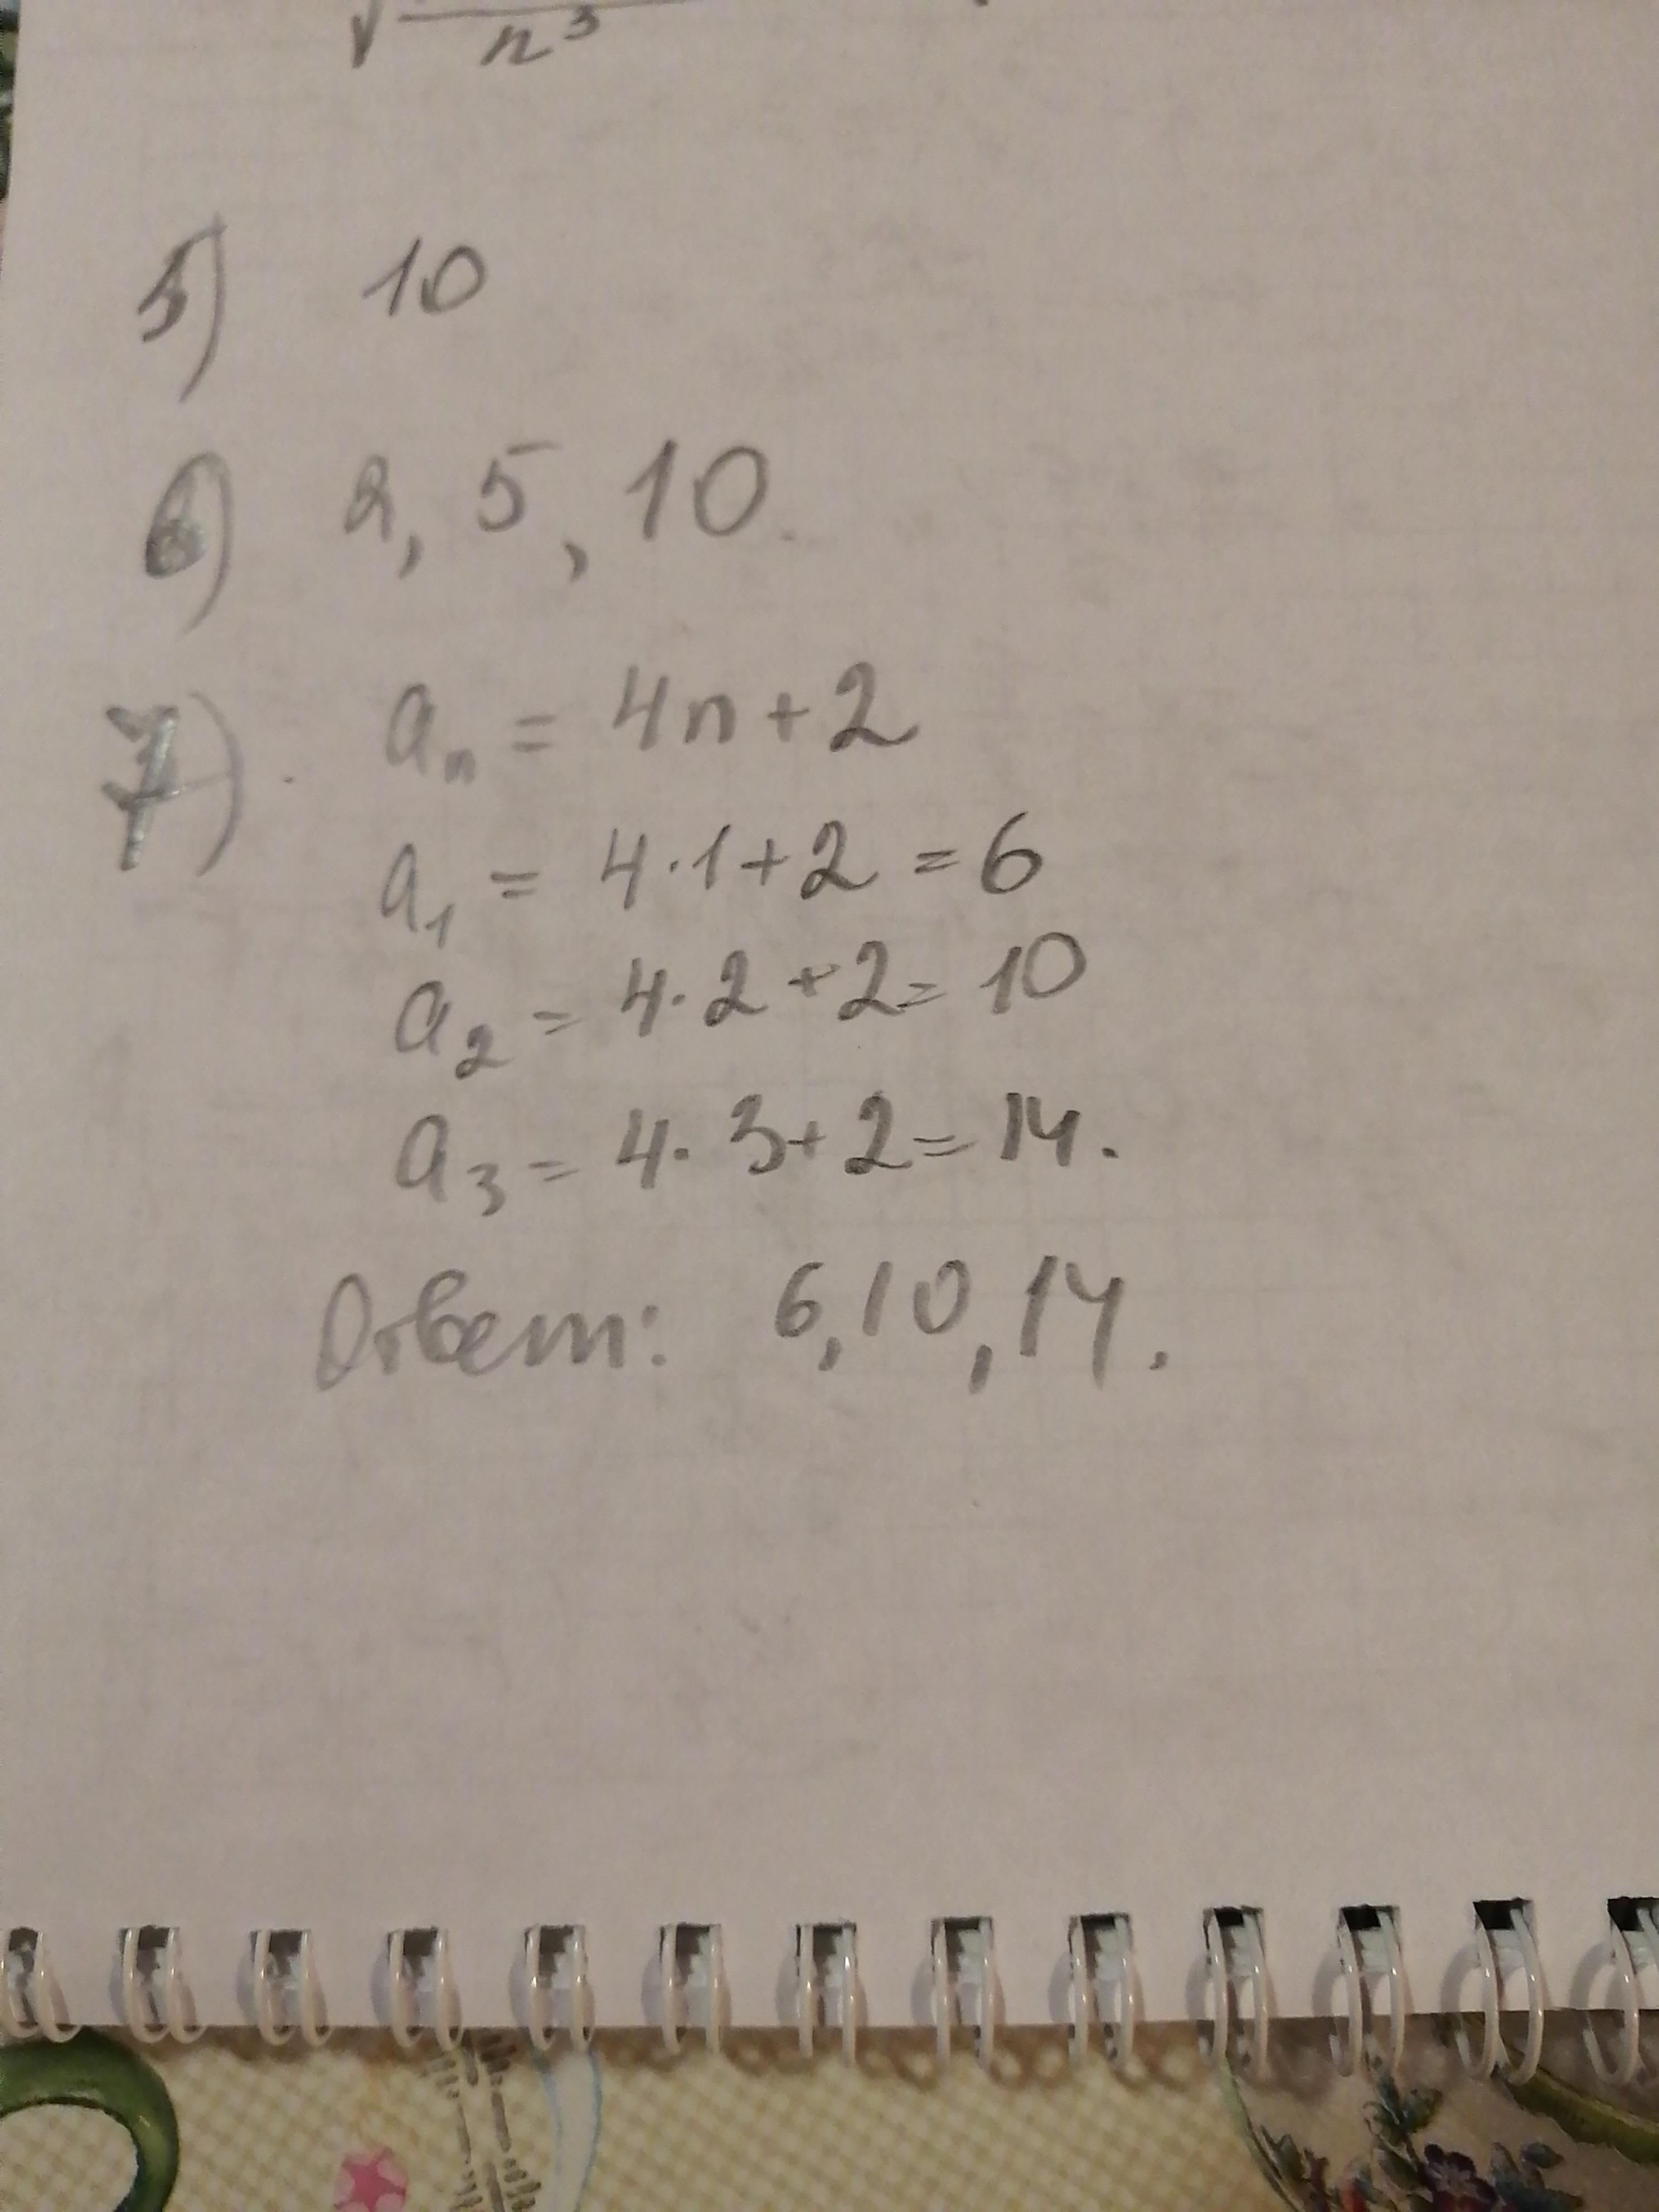 √ n³
5) 10
6) 2, 5, 10.
7). aₙ = 4n + 2
a₁ = 4·1 + 2 = 6
a₂ = 4·2 + 2 = 10
a₃ = 4·3 + 2 = 14.
Ответ: 6, 10, 14.